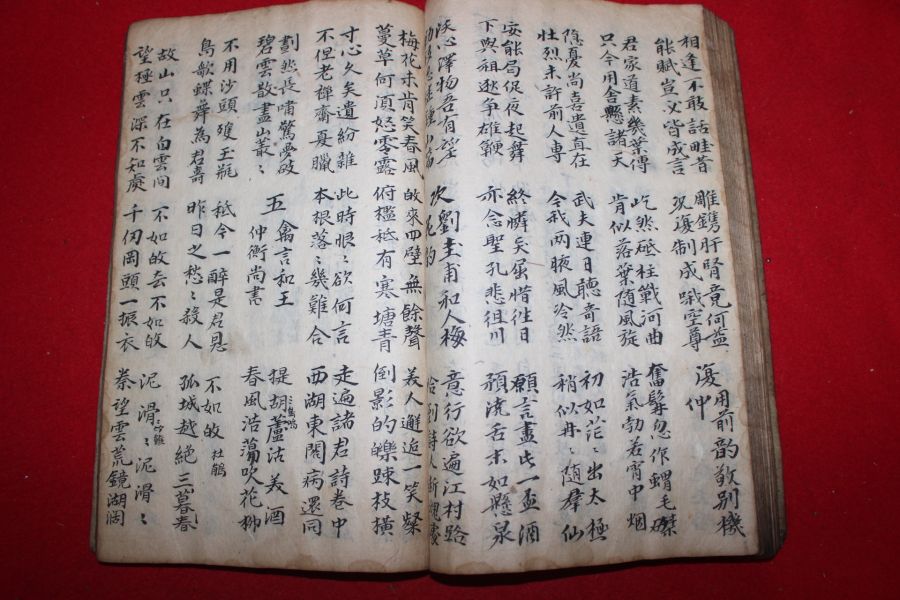 相逢不敢話疇昔
能賦豈必皆成言
雕鎪肝腎竟何益
况復制成哦空尊
復用前韵敬別機仲
君家道素幾葉傳
只今用舍懸諸天
屹然砥柱戰河曲
肯似落葉随風旋
奮髯忽作蝟毛磔
浩氣勃若霄中烟
隱憂尚喜遺直在
壯烈未許前人專
武夫連日聽奇語
令我兩腋風泠然
初如茫々出太極
稍似冉々随羣仙
安能局促夜起舞
下與祖逖爭雄鞭
終憐矣屈惜徃日
亦念聖孔悲徂川
願言盡此一盃酒
預澆舌本如懸泉
沃心澤物吾有望
次劉圭甫和人梅
意行欲遍江村路
梅花未肯笑春風
蔓草何須怒零露
故來四壁無餘馨
俯檻秪有寒塘青
美人邂逅一笑粲
倒影的皪踈枝横
寸心久矣遺紛雜
不但老禪齋夏臘
此時恨々欲何言
本根落々幾難合
走遍諸君詩卷中
西湖東閣病還同
劃然長嘯驚夢破
碧雲散盡山叢々
五禽言和王
仲衡尚書
提胡蘆沽美酒
春風浩蕩吹花柳
不用沙頭雙玉瓶
鳥歌蝶舞為君壽
秪今一醉是君恩
昨日之愁々殺人
不如故 杜鵑
孤城越絕三暮春
故山只在白雲間
望極雲深不知處
不如故去不如故
千仞岡頭一振衣
泥滑々泥滑々
秦望雲荒鏡湖闊